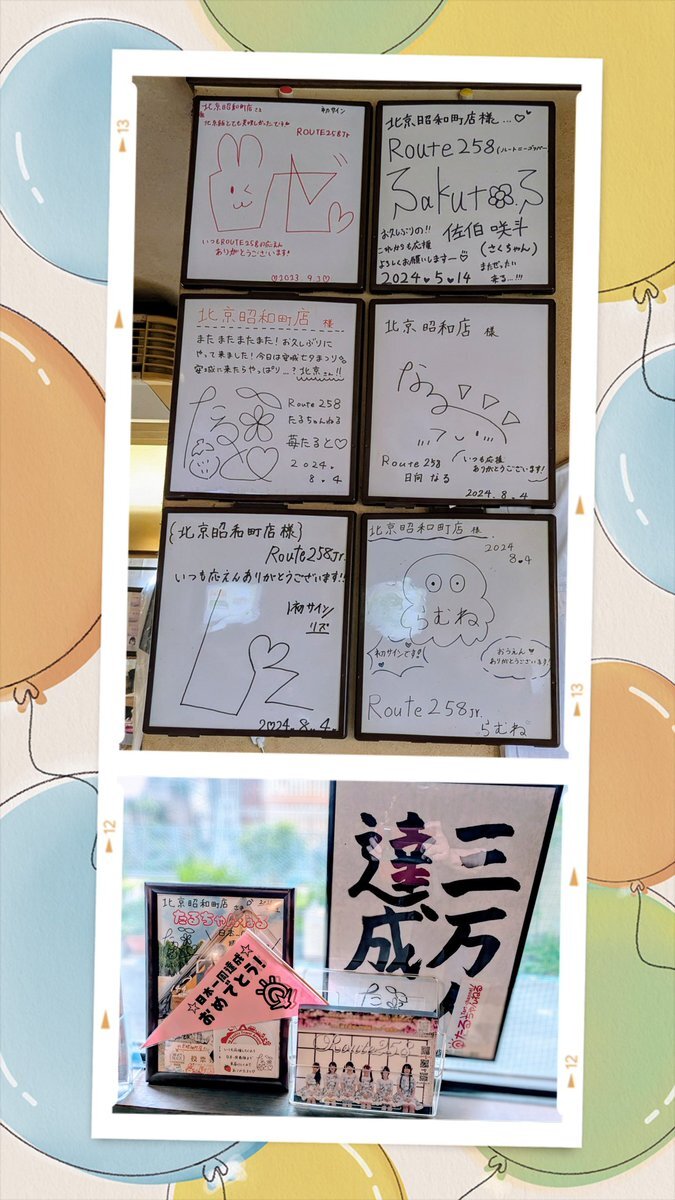 北京昭和町店さん
初サイン
ROUTE258Jr
いつもROUTE258の応えん
ありがとうございます!
♡2023 9.3♡
北京昭和町店様...♡
Route258(ルートニーゴッパー
Sakuto
お久しぶりの!!
佐伯咲斗
これからも応援
(さくちゃん)
よろしくお願いします〜♡
またぜったい
2024♥5♥14
来る...!!!
北京昭和町店 様
またまたまたまた!お久しぶりに
やって来ました!今日は安城七夕まつり
安城に来たらやっぱり...?北京さん!!
Route258
たるちゃんねる
苺たると♡
2024.
8.4
北京 昭和店 様
なる
Route258
日向 なる
いつも応援
ありがとうございます!
2024.8.4
{北京昭和町店様}
Route258Jr.
いつも応えんありがとうございます!!
初サイン
リズ
2024.8.4
北京昭和町店 様
2024
8.4
らむね
初サインです!
おうえん♥
ありがとうございます!
Route258Jr.
らむね
北京昭和町店
たるちゃんねる
☆日本一周達成☆
おめでとう!
三万人
達成
Route258
13
13
12
12